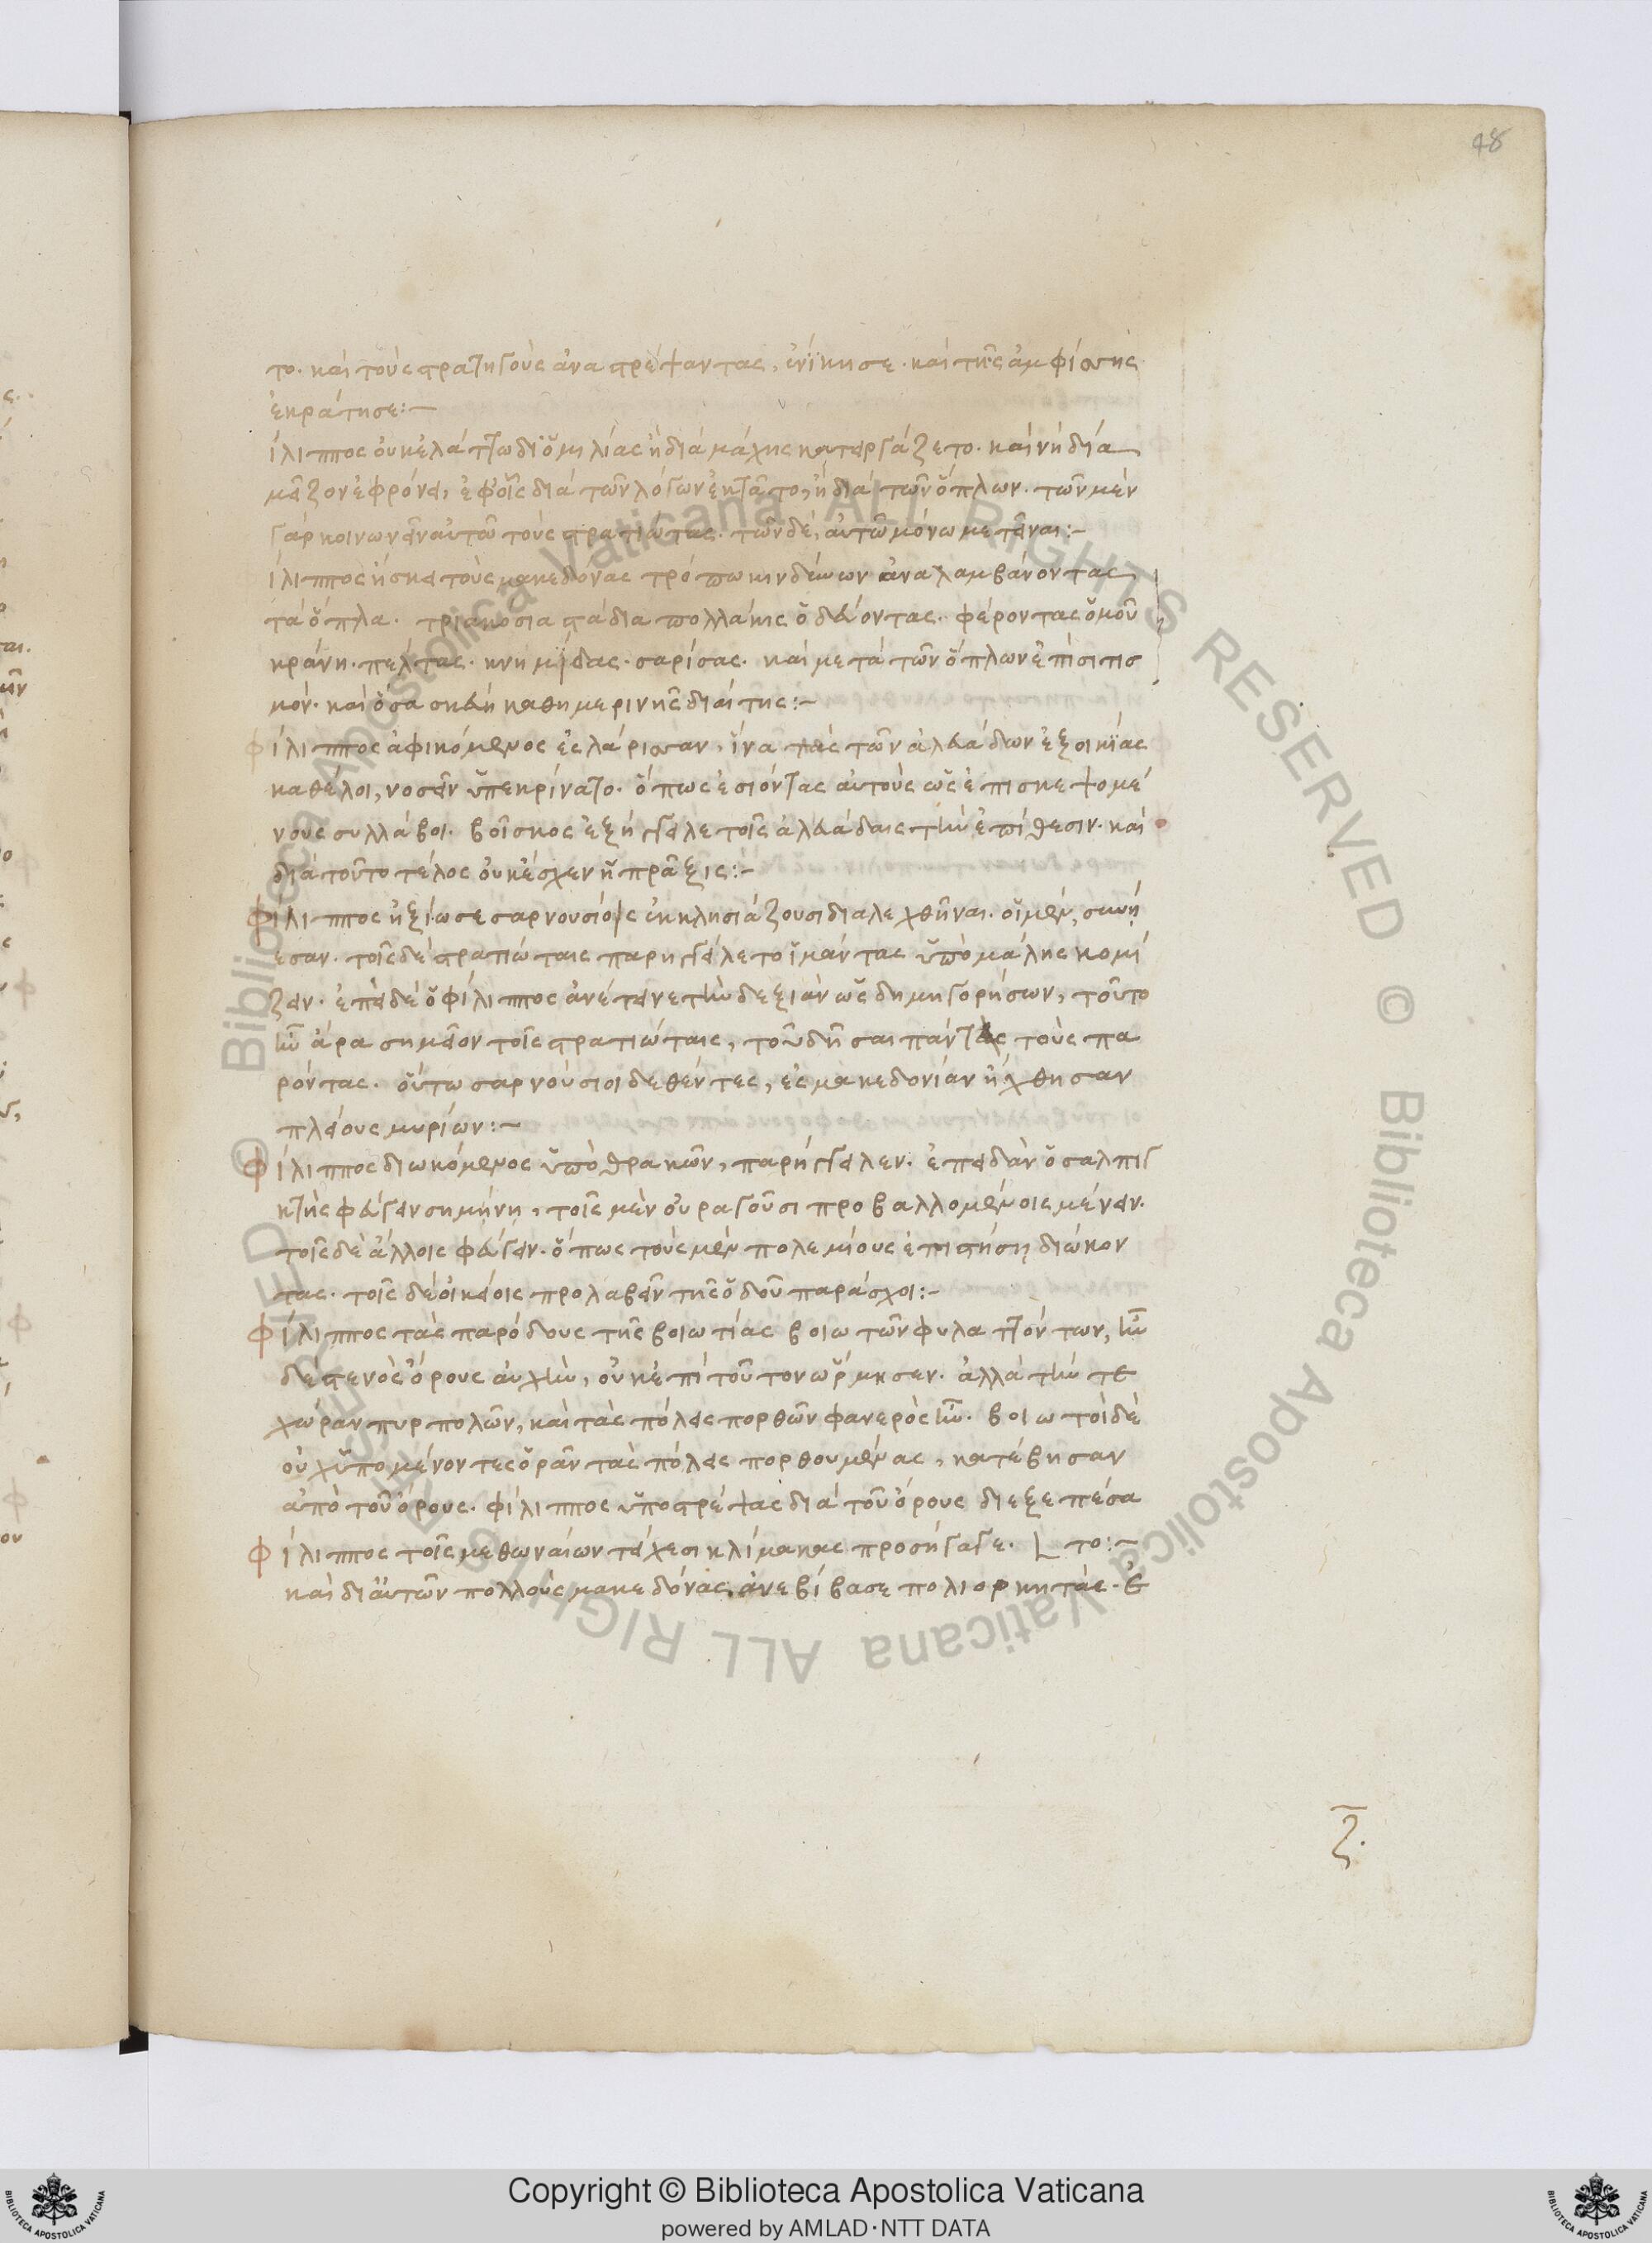 48
το. καὶ τοὺς στρατηγοὺς ἀναστρέψαντας, ἐνίκησε. καὶ τῆς ἀμφίσσης
ἐκράτησε:-
ίλιππος οὐκ ἐλάττω δι' ὁμιλίας ἢ διὰ μάχης κατειργάζετο. καὶ νὴ δία
μεῖζον ἐφρόνει, ἐφ' οἷς διὰ τῶν λόγων ἐκτᾶτο, ἢ διὰ τῶν ὅπλων. τῶν μὲν
γὰρ κοινωνεῖν αὐτῶ τοὺς στρατιώτας. τῶν δὲ, αὐτῶ μόνω μετεῖναι:-
ίλιππος ἤσκει τοὺς μακεδόνας πρὸ τῶν κινδύνων ἀναλαμβάνοντας
τὰ ὅπλα. τριακόσια στάδια πολλάκις ὁδεύοντας. φέροντας ὁμοῦ
κράνη. πέλτας. κνημῖδας. σαρίσας. καὶ μετὰ τῶν ὅπλων ἐπισιτισ
μόν. καὶ ὅσα σκεύη καθημερινῆς διαίτης:-
Φίλιππος ἀφικόμενος εἰς λάρισσαν, ἵνα τὰς τῶν ἀλευάδων ἐξ οἰκίας
καθέλοι, νοσεῖν ὑπεκρίνατο. ὅπως εἰσιόντας αὐτοὺς ὡς ἐπισκεψομέ
νους συλλάβοι. βοΐσκος ἐξήγγειλε τοῖς ἀλευάδαις τὴν ἐπίθεσιν. καὶ
διὰ τοῦτο τέλος οὐκ ἔσχεν ἡ πρᾶξις:-
Φίλιππος ἠξίωσε σαρνουσίοις ἐκκλησιάζουσι διαλεχθῆναι. οἱ μὲν, συνή
εσαν. τοῖς δὲ στρατιώταις παρήγγειλε τοὶ ἱμάντας ὑπὸ μάλης κομί
ζειν. ἐπεὶ δὲ ὁ φίλιππος ἀνέτεινε τὴν δεξιὰν ὡς δημηγορήσων, τοῦτο
ἦν ἄρα σημεῖον τοῖς στρατιώταις, τοῦ δῆσαι πάντας τοὺς πα
ρόντας. οὕτω σαρνούσιοι δεθέντες, εἰς μακεδονίαν ἤχθησαν
πλείους μυρίων:-
Φίλιππος διωκόμενος ὑπὸ θρακῶν, παρήγγειλεν. ἐπειδὰν ὁ σαλπιγ
κτὴς φεύγειν σημήνη, τοῖς μὲν οὐραγοῦσι προβαλλομένοις μένειν.
τοῖς δὲ ἄλλοις φεύγειν. ὅπως τοὺς μὲν πολεμίους ἐπιστήση διώκον
τας. τοῖς δὲ οἰκείοις προλαβεῖν τῆς ὁδοῦ παράσχοι:-
Φίλιππος τὰς παρόδους τῆς βοιωτίας βοιωτῶν φυλαττόντων, ἦν
δὲ στενὸς ὄρους αὐχὴν, οὐκ ἐπὶ τοῦτον ὥρμησεν. ἀλλὰ τήν τε
χώραν πυρπολῶν, καὶ τὰς πόλεις πορθῶν φανερὸς ἦν. βοιωτοὶ δὲ
οὐχ ὑπομένοντες ὁρᾶν τὰς πόλεις πορθουμένας, κατέβησαν
ἀπὸ τοῦ ὄρους. φίλιππος ὑποστρέψας διὰ τοῦ ὄρους διεξεπέσα
Φίλιππος τοῖς μεθωναίων τείχεσι κλίμακας προσήγαγε. το:-
καὶ δι' αὐτῶν πολλοὺς μακεδόνας ἀνεβίβασε πολιορκητάς. ἐ
ζ.
Copyright © Biblioteca Apostolica Vaticana
powered by AMLAD·NTT DATA